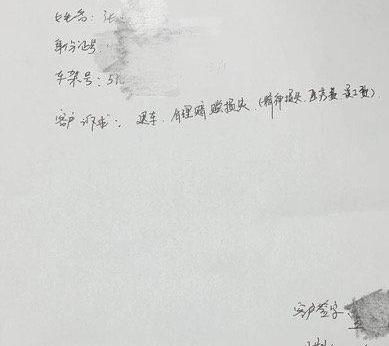 姓名：张
身份证号：
车架号：5
客户诉求：退车、合理赔偿损失（精神损失、医疗费、误工费）
客户签字